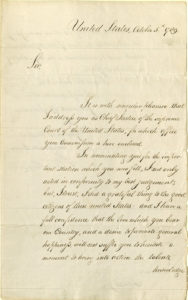 United States, October 5th 1789
Sir,
It is with singular pleasure that
I address you as Chief Justice of the supreme
Court of the United States, for which office
your Commission is here enclosed.
In nominating you for the important
station which you now fill, I not only
acted in conformity to my best judgement;
but, I trust, I did a grateful thing to the good
citizens of these united States: and I have a
full confidence that the love which you bear
our Country, and a desire to promote general
happiness, will not suffer you to hesitate a
moment to bring into action the talents,